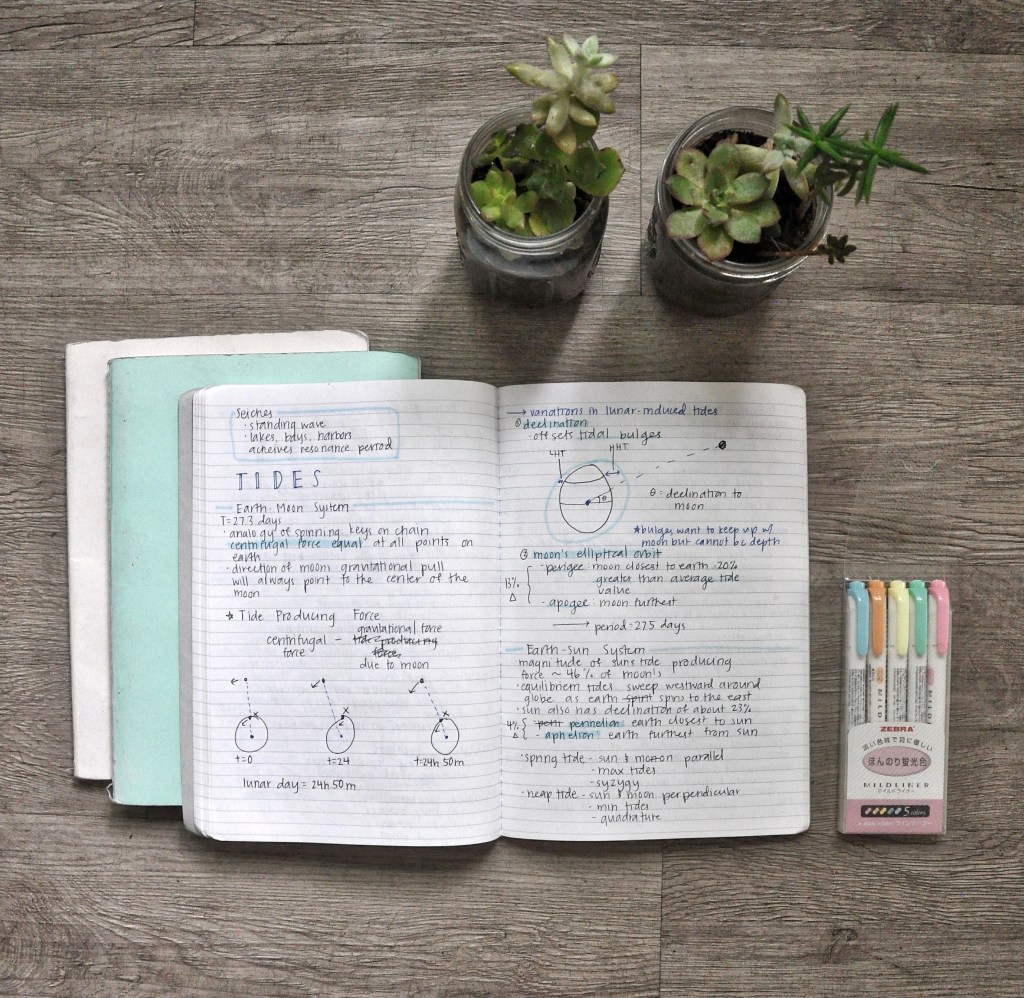 Seiches
· standing wave
· lakes, bays, harbors
acheives resonance period
TIDES
Earth-Moon System
T=27.3 days
· analogy of spinning keys on chain
centrifugal force equal at all points on
earth
· direction of moons gravitational pull
will always point to the center of the
moon
* Tide Producing Force
gravitational force
centrifugal – tide producing
force force
due to moon
t=0 t=24 t=24h 50m
lunar day = 24h 50m
→ variations in lunar-induced tides
① declination
· offsets tidal bulges
LHT HHT
θ
θ = declination to
moon
*bulges want to keep up w/
moon but cannot bc depth
② moon's elliptical orbit
· perigee: moon closest to earth = 20%
greater than average tide
value
15% Δ
· apogee: moon furthest
→ period = 27.5 days
Earth-Sun System
magnitude of suns tide producing
force ~ 46% of moon's
· equilibriem tides sweep westward around
globe as earth spirit spins to the east
· sun also has declination of about 23%
4% Δ { - perit perihelion earth closest to sun
- aphelion earth furthest from sun
· spring tide - sun & moon parallel
- max tides
- syzygy
· neap tide - sun & moon perpendicular
- min tides
- quadrature
ZEBRA
濃い色味で目に優しい
ほんのり蛍光色
MILDLINER
マイルドライナー
5 colors